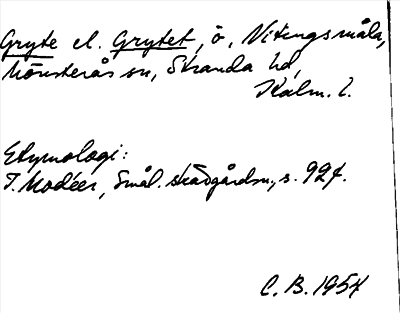 Gryte el. Grytet, ö, Vitingsmåla,
Mönsterås sn, Stranda hd,
Kalm. l.
Etymologi:
I. Modéer, Smål. skärgårdsn., s. 92 f.
C. B. 1954